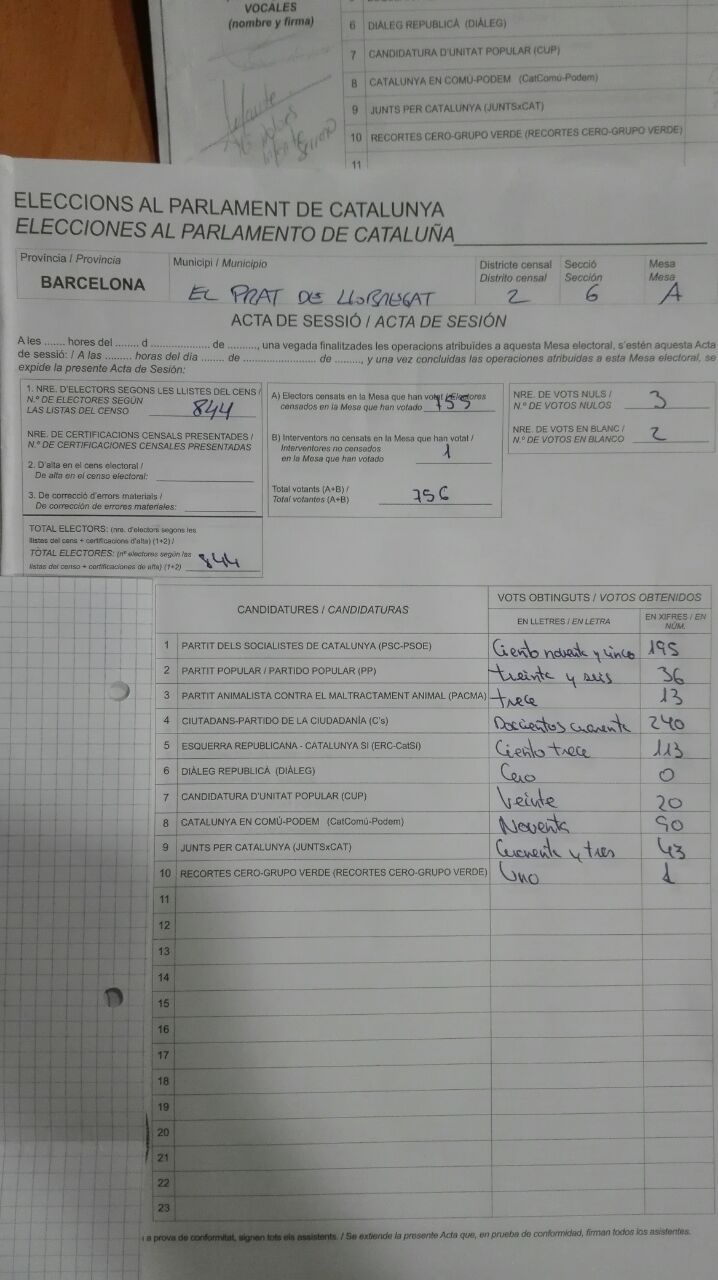 VOCALES
(nombre y firma)
6 DIÀLEG REPUBLICÀ (DIÀLEG)
7 CANDIDATURA D'UNITAT POPULAR (CUP)
8 CATALUNYA EN COMÚ-PODEM (CatComú-Podem)
9 JUNTS PER CATALUNYA (JUNTSxCAT)
10 RECORTES CERO-GRUPO VERDE (RECORTES CERO-GRUPO VERDE)
11
ELECCIONS AL PARLAMENT DE CATALUNYA
ELECCIONES AL PARLAMENTO DE CATALUÑA
Província / Provincia BARCELONA
Municipi / Municipio EL PRAT DE LLOBREGAT
Districte censal Distrito censal 2
Secció Sección 6
Mesa Mesa A
ACTA DE SESSIÓ / ACTA DE SESIÓN
A les ....... hores del ....... d ................... de ........., una vegada finalitzades les operacions atribuïdes a aquesta Mesa electoral, s'estén aquesta Acta
de sessió: / A las ......... horas del día ....... de ................... de ........., y una vez concluidas las operaciones atribuidas a esta Mesa electoral, se
expide la presente Acta de Sesión:
1. NRE. D'ELECTORS SEGONS LES LLISTES DEL CENS /
N.º DE ELECTORES SEGÚN
LAS LISTAS DEL CENSO 844
NRE. DE CERTIFICACIONS CENSALS PRESENTADES /
N.º DE CERTIFICACIONES CENSALES PRESENTADAS
2. D'alta en el cens electoral /
De alta en el censo electoral:
3. De correcció d'errors materials /
De corrección de errores materiales:
TOTAL ELECTORS: (nre. d'electors segons les
llistes del cens + certificacions d'alta) (1+2) /
TOTAL ELECTORES: (nº electores según las
listas del censo + certificaciones de alta) (1+2) 844
A) Electors censats en la Mesa que han votat / Electores
censados en la Mesa que han votado 755
B) Interventors no censats en la Mesa que han votat /
Interventores no censados
en la Mesa que han votado 1
Total votants (A+B) /
Total votantes (A+B) 756
NRE. DE VOTS NULS /
N.º DE VOTOS NULOS 3
NRE. DE VOTS EN BLANC /
N.º DE VOTOS EN BLANCO 2
CANDIDATURES / CANDIDATURAS
VOTS OBTINGUTS / VOTOS OBTENIDOS
EN LLETRES / EN LETRA
EN XIFRES / EN NÚM.
1 PARTIT DELS SOCIALISTES DE CATALUNYA (PSC-PSOE) Ciento noventa y cinco 195
2 PARTIT POPULAR / PARTIDO POPULAR (PP) treinta y seis 36
3 PARTIT ANIMALISTA CONTRA EL MALTRACTAMENT ANIMAL (PACMA) trece 13
4 CIUTADANS-PARTIDO DE LA CIUDADANÍA (C's) Doscientos cuarenta 240
5 ESQUERRA REPUBLICANA - CATALUNYA SÍ (ERC-CatSí) Ciento trece 113
6 DIÀLEG REPUBLICÀ (DIÀLEG) Cero 0
7 CANDIDATURA D'UNITAT POPULAR (CUP) Veinte 20
8 CATALUNYA EN COMÚ-PODEM (CatComú-Podem) Noventa 90
9 JUNTS PER CATALUNYA (JUNTSxCAT) Cuarenta y tres 43
10 RECORTES CERO-GRUPO VERDE (RECORTES CERO-GRUPO VERDE) Uno 1
11
12
13
14
15
16
17
18
19
20
21
22
23
a prova de conformitat, signen tots els assistents. / Se extiende la presente Acta que, en prueba de conformidad, firman todos los asistentes.